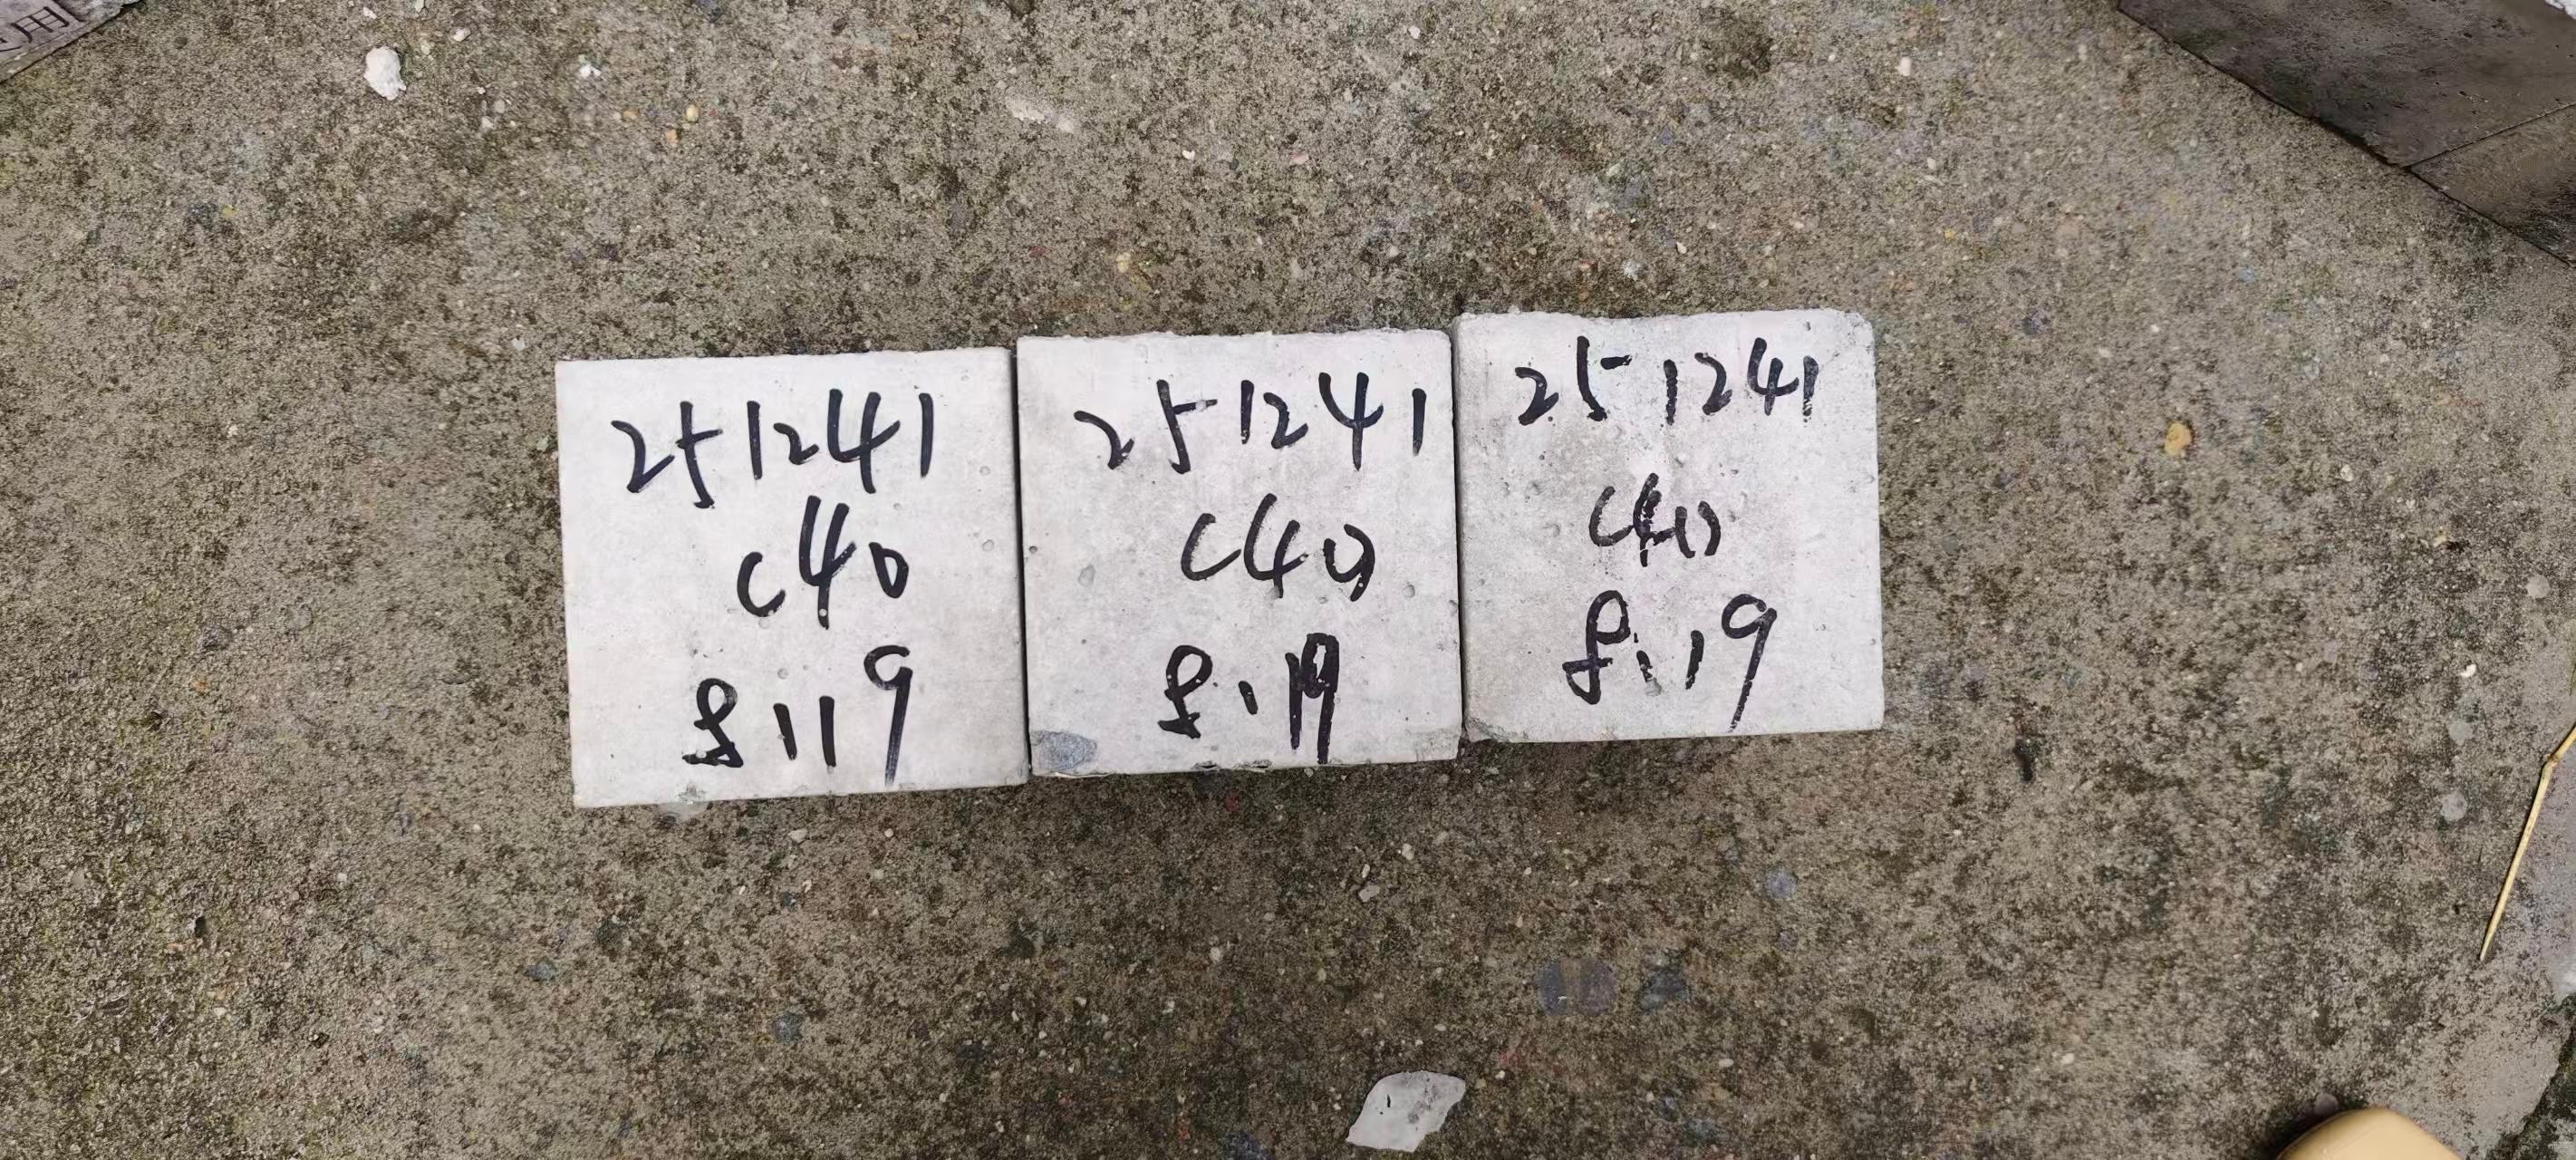 用
251241
C40
8.119
251241
C40
8.19
251241
C40
8.19